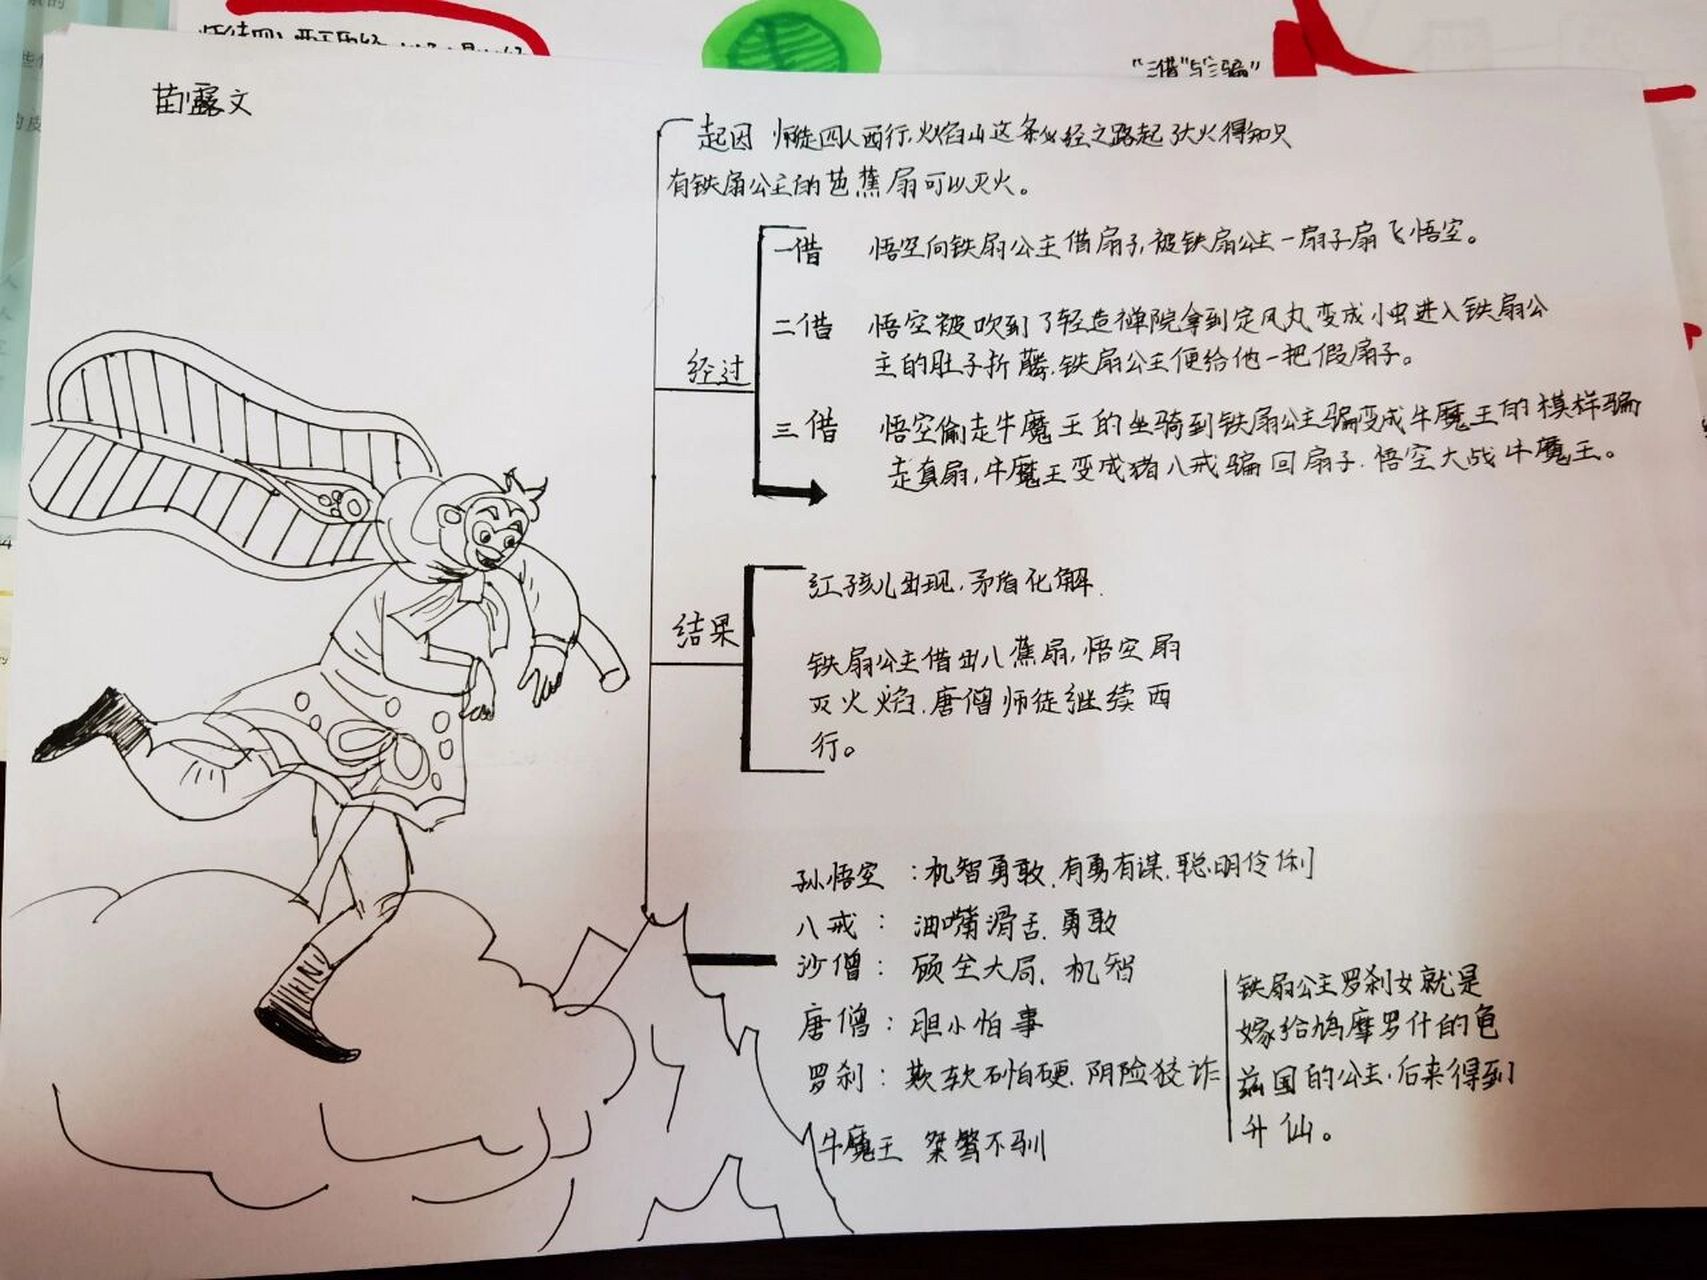 "三借"与"三骗"
苗露文
起因 师徒四人西行,火焰山这条必经之路起了大火得知只
有铁扇公主的芭蕉扇可以灭火。
一借 悟空向铁扇公主借扇子,被铁扇公主一扇子扇飞悟空。
二借 悟空被吹到了轻造禅院拿到定风丸变成小虫进入铁扇公
主的肚子折腾.铁扇公主便给他一把假扇子。
经过
三借 悟空偷走牛魔王的坐骑到铁扇公主骗变成牛魔王的模样骗
走真扇,牛魔王变成猪八戒骗回扇子.悟空大战牛魔王。
红孩儿出现,矛盾化解.
结果
铁扇公主借出八蕉扇,悟空扇
灭火焰.唐僧师徒继续西
行。
孙悟空:机智勇敢,有勇有谋.聪明伶俐
八戒:油嘴滑舌.勇敢
沙僧:顾全大局.机智
唐僧:胆小怕事
罗刹:欺软怕硬.阴险狡诈
牛魔王 桀骜不驯
铁扇公主罗刹女就是
嫁给鸠摩罗什的龟
兹国的公主.后来得到
升仙。